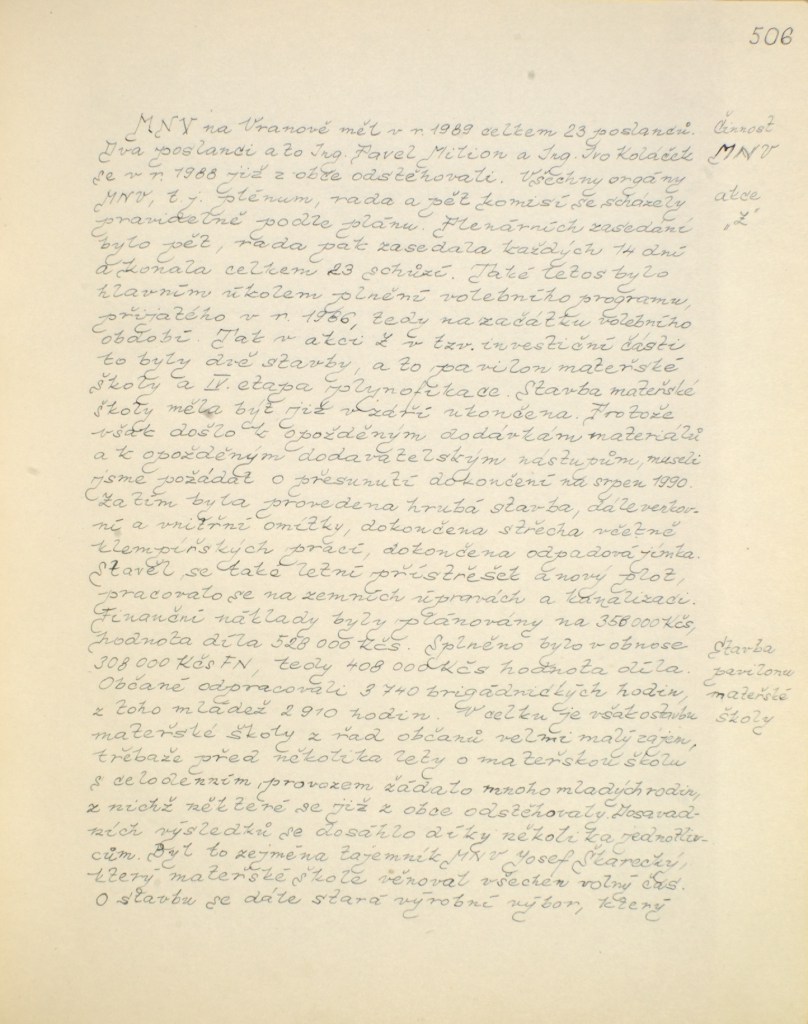 506
MNV na Vranově měl v r. 1989 celkem 23 poslanců.
Dva poslanci a to Ing. Pavel Milion a Ing. Ivo Koláček
se v r. 1988 již z obce odstěhovali. Všechny orgány
MNV, t. j. plénum, rada a pět komisí se scházely
pravidelně podle plánu. Plenárních zasedání
bylo pět, rada pak zasedala každých 14 dní
a konala celkem 23 schůzí. Také letos bylo
hlavním úkolem plnění volebního programu,
přijatého v r. 1986, tedy na začátku volebního
období. Tak v akci Z v tzv. investiční části
to byly dvě stavby, a to pavilon mateřské
školy a IV. etapa plynofikace. Stavba mateřské
školy měla být již v září ukončena. Protože
však došlo k opožděným dodávkám materiálů
a k opožděným dodavatelským nástupům, museli
jsme požádat o přesunutí dokončení na srpen 1990.
Zatím byla provedena hrubá stavba, dále venkov-
ní a vnitřní omítky, dokončena střecha včetně
klempířských prací, dokončena odpadová jímka.
Stavěl se také letní přístřešek a nový plot,
pracovalo se na zemních úpravách a kanalizaci.
Finanční náklady byly plánovány na 356 000 Kčs,
hodnota díla 528 000 Kčs. Splněno bylo v obnose
308 000 Kčs FN, tedy 408 000 Kčs hodnota díla.
Občané odpracovali 3 740 brigádnických hodin,
z toho mládež 2 910 hodin. V celku je však o stavbu
mateřské školy z řad občanů velmi malý zájem,
třebaže před několika lety o mateřskou školu
s celodenním provozem žádalo mnoho mladých rodin,
z nichž některé se již z obce odstěhovaly. Dosavad-
ních výsledků se dosáhlo díky několika jednotliv-
cům. Byl to zejména tajemník MNV Josef Štarecký,
který mateřské škole věnoval všechen volný čas.
O stavbu se dále stará výrobní výbor, který
Činnost
MNV
akce
„Z“
Stavba
pavilonu
mateřské
školy